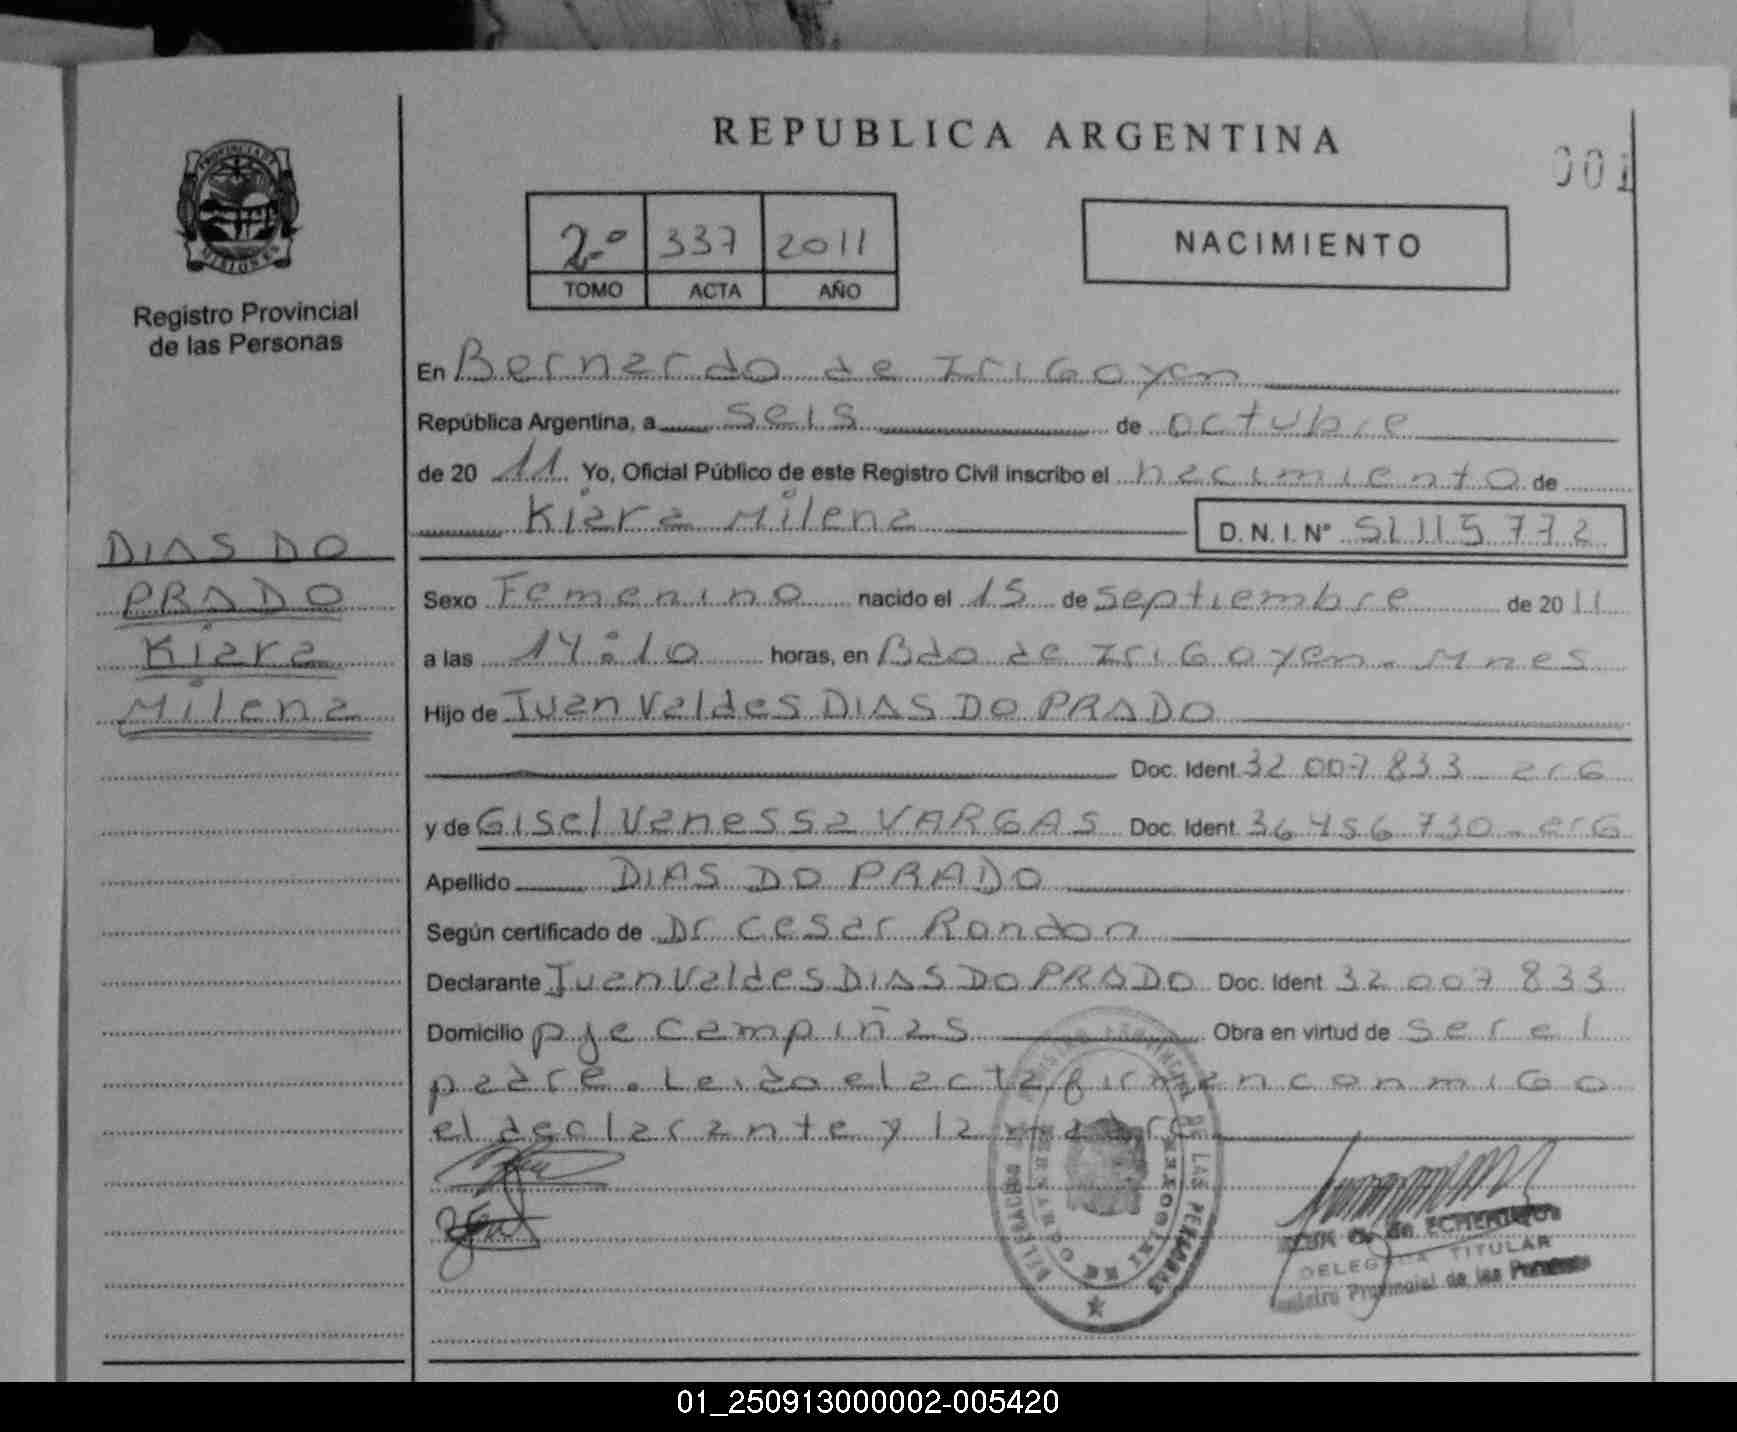 REPUBLICA ARGENTINA
001
PROVINCIA DE MISIONES
Registro Provincial
de las Personas
2º 337 2011
TOMO ACTA AÑO
NACIMIENTO
En Bernardo de Irigoyen
República Argentina, a seis de octubre
de 20 11 Yo, Oficial Público de este Registro Civil inscribo el nacimiento de
Kiara Milena D.N.I.Nº 51 115 772
DIAS DO
PRADO
Kiara
Milena
Sexo Femenino nacido el 15 de septiembre de 20 11
a las 14:10 horas, en Bdo de Irigoyen. Mnes
Hijo de Juan Valdes DIAS DO PRADO
Doc. Ident 32 007 833 arG
y de Gisel Vanessa VARGAS Doc. Ident 36 456 730 - arG
Apellido DIAS DO PRADO
Según certificado de Dr Cesar Rondon
Declarante Juan Valdes DIAS DO PRADO Doc. Ident 32 007 833
Domicilio pje Campiñas Obra en virtud de ser el
padre. Leido el acta firman conmigo
el declarante y la madre
DELEGADA TITULAR
Registro Provincial de las Personas
01_250913000002-005420